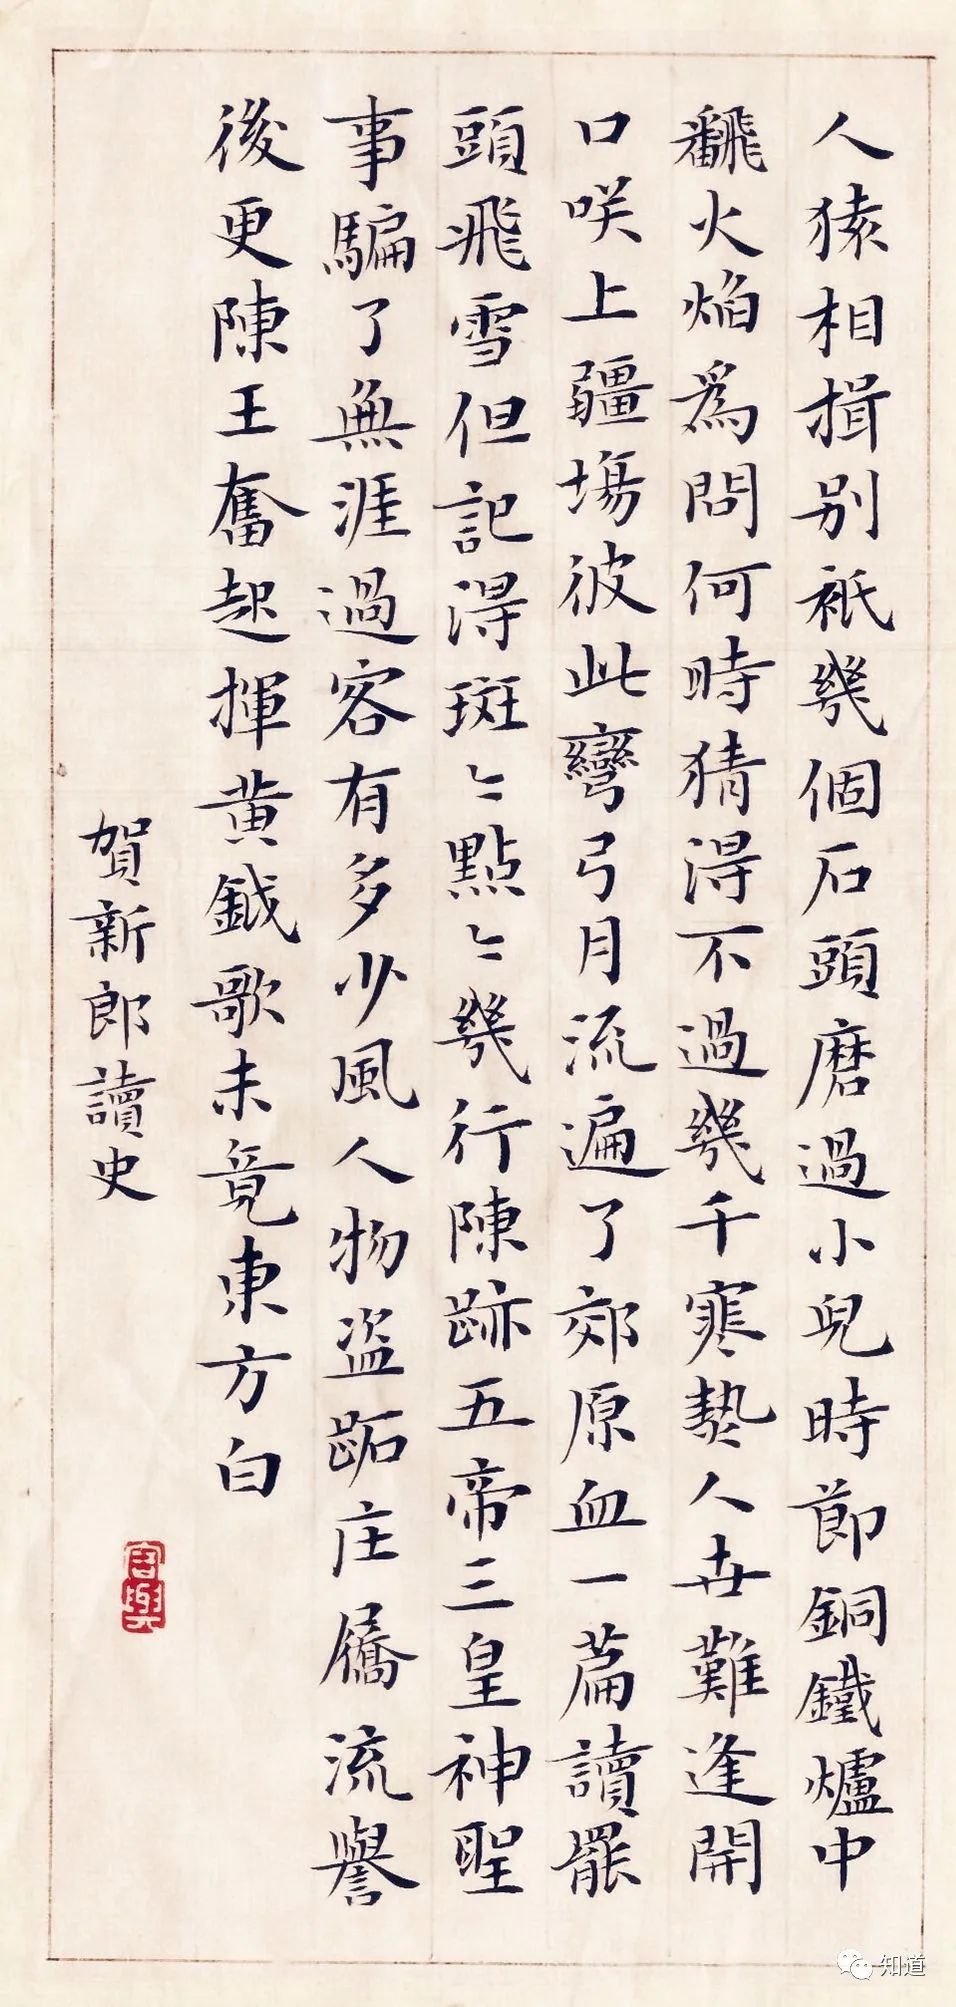 人猿相揖别衹幾個石頭磨過小兒時節銅鐵爐中
飜火焰爲問何時猜得不過幾千寒熱人世難逢開
口咲上疆場彼此彎弓月流遍了郊原血一篇讀罷
頭飛雪但記得斑〻點〻幾行陳跡五帝三皇神聖
事騙了無涯過客有多少風人物盗跖庄屩流譽
後更陳王奮起揮黄鉞歌未竟東方白
賀新郎讀史
知道